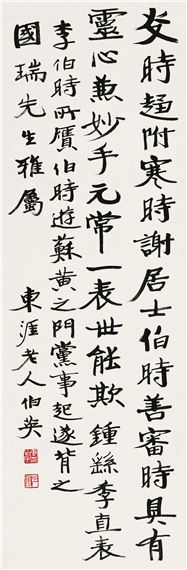 炎時趨附寒時謝居士伯時善審時具有
靈心兼妙手元常一表世能欺 鍾繇季直表
李伯時所贋伯時遊蘇黃之門黨事起遂背之
國瑞先生雅屬 東涯老人伯英